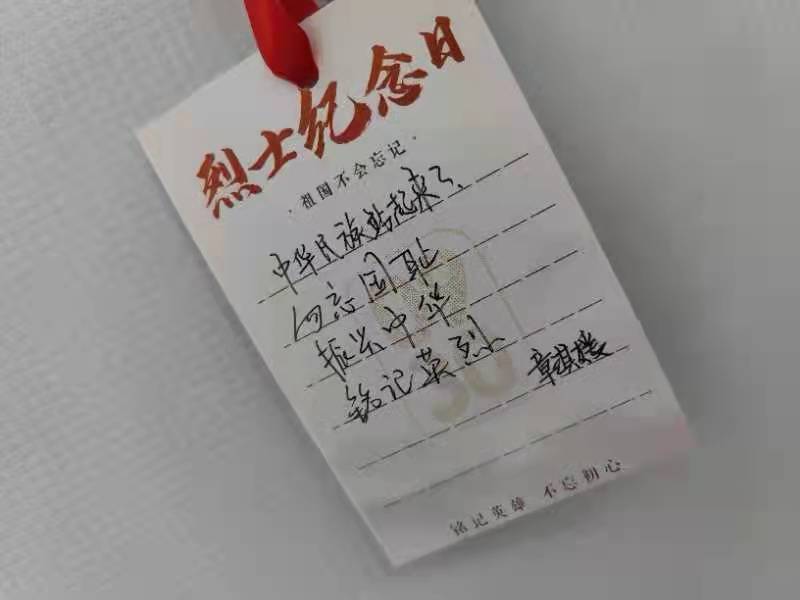 烈士纪念日
·祖国不会忘记·
中华民族站起来了、
勿忘国耻
振兴中华
铭记英烈
铭记英雄 不忘初心